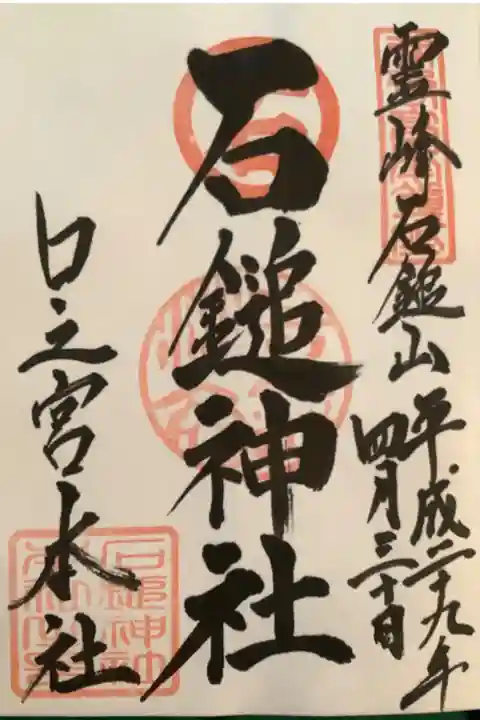 霊峰石鎚山 平成二十九年
四月三十日
石鎚神社
口之宮本社
石鎚神社